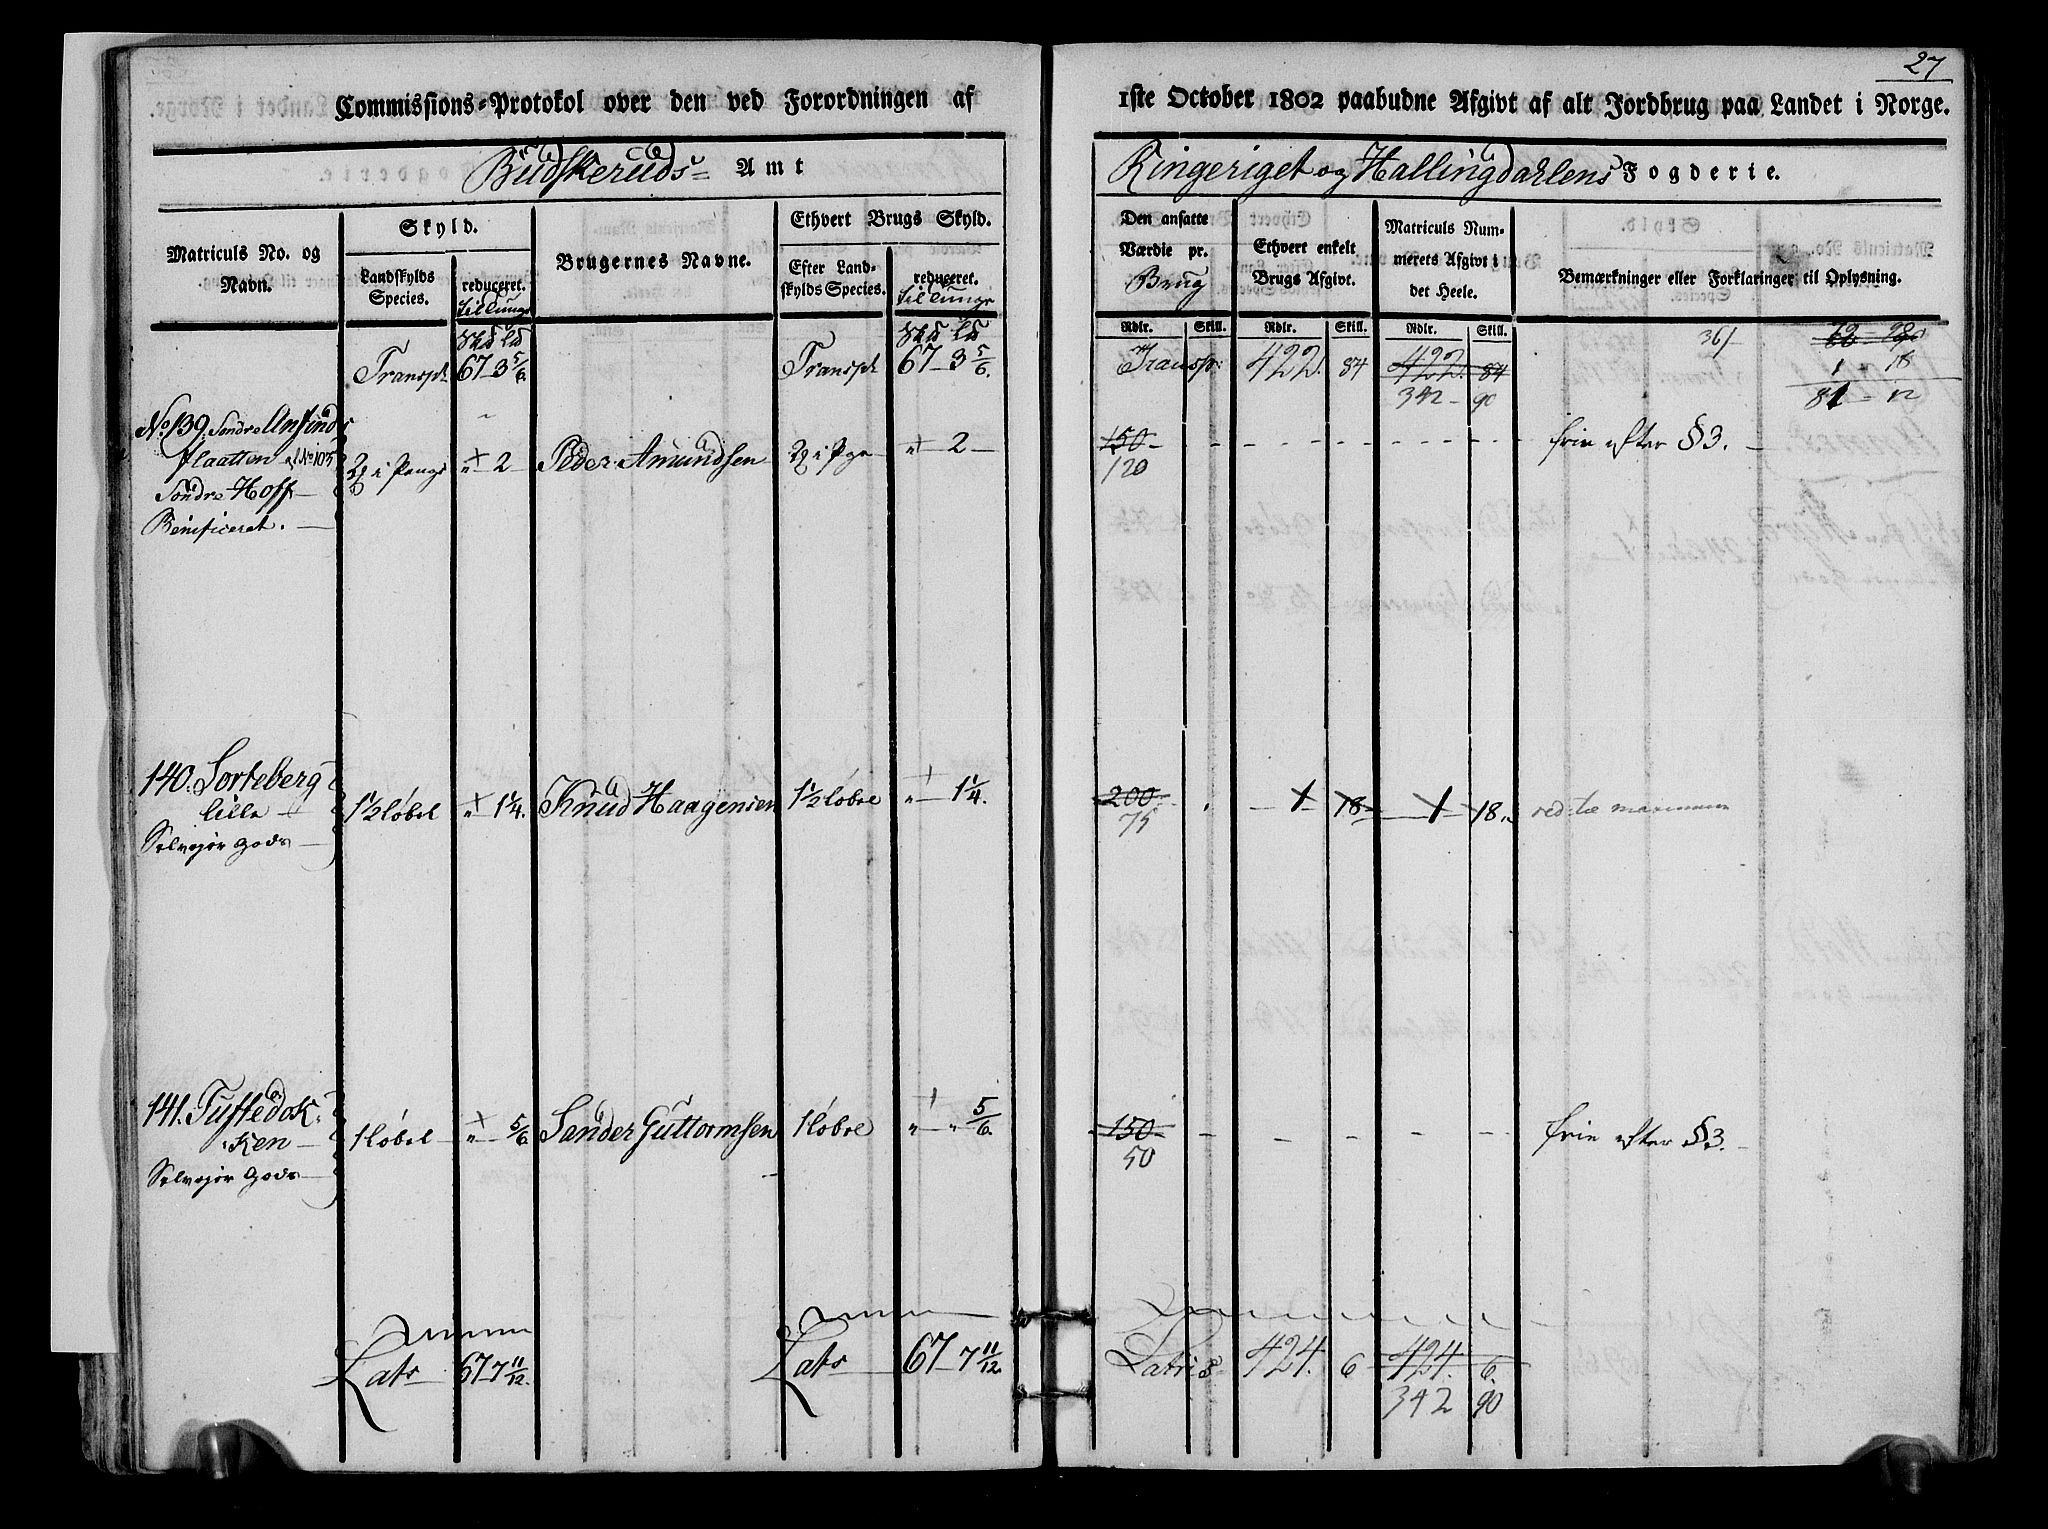 27
Commissions-Protokol over den ved Forordningen af 1ste October 1802 paabudne Afgivt af alt Jordbrug paa Landet i Norge.
Budskeruds Amt
Ringeriget og Hallingdahlens Fogderie.
Matriculs No. og Navn.
Skyld.
Landskylds Species.
reduceret. til tunge
Brugernes Navne.
Ethvert Brugs Skyld.
Efter Landskylds Species.
reduceret. til tunge
Den ansatte Værdie pr. Brug
Ethvert enkelt Brugs Afgivt.
Matriculs Nummerets Afgivt i det Heele.
Bemærkninger eller Forklaringer til Oplysning.
Rdlr. Skill. Rdlr. Skill. Rdlr. Skill.
Skd Ld Skd Ld
Transpt 67 3 5/6 Transpt 67 - 3 5/6. Transp: 422. 84 422. 84
342 - 90
361
1 18
81 - 12
No 139. Søndre Ansinds
flaatten af No 105
Søndre Hoff
Benificeret.
i Penge " 2 Peder Amundsen i Pge " 2 150 frie efter §3.
120
140. Sorteberg
lille
Selvejer Gods
1 1/2 Løbel " 1 1/4. Knud Haagensen 1 1/2 Løbre " 1 1/4. 200 1 18 1 18. red: til maximum
75
141. Tuftedok-
ken
Selvejer Gods
1 Løbel " 5/6 Sander Guttormsen 1 Løbre " " 5/6. 150 frie efter §3.
50
Lats 67 7 11/12. Lats 67 - 7 11/12. Latris 424. 6 424. 6.
342 90